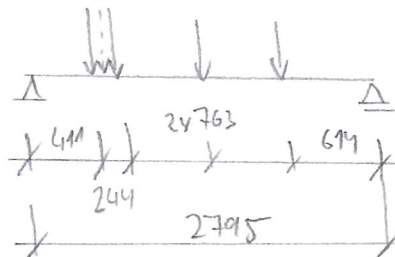 411 2x763 614
244
2795